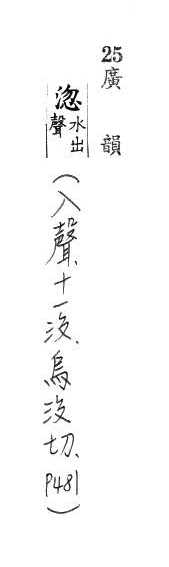 25廣韻
淴水出聲(入聲、十一沒、烏沒切、P481)